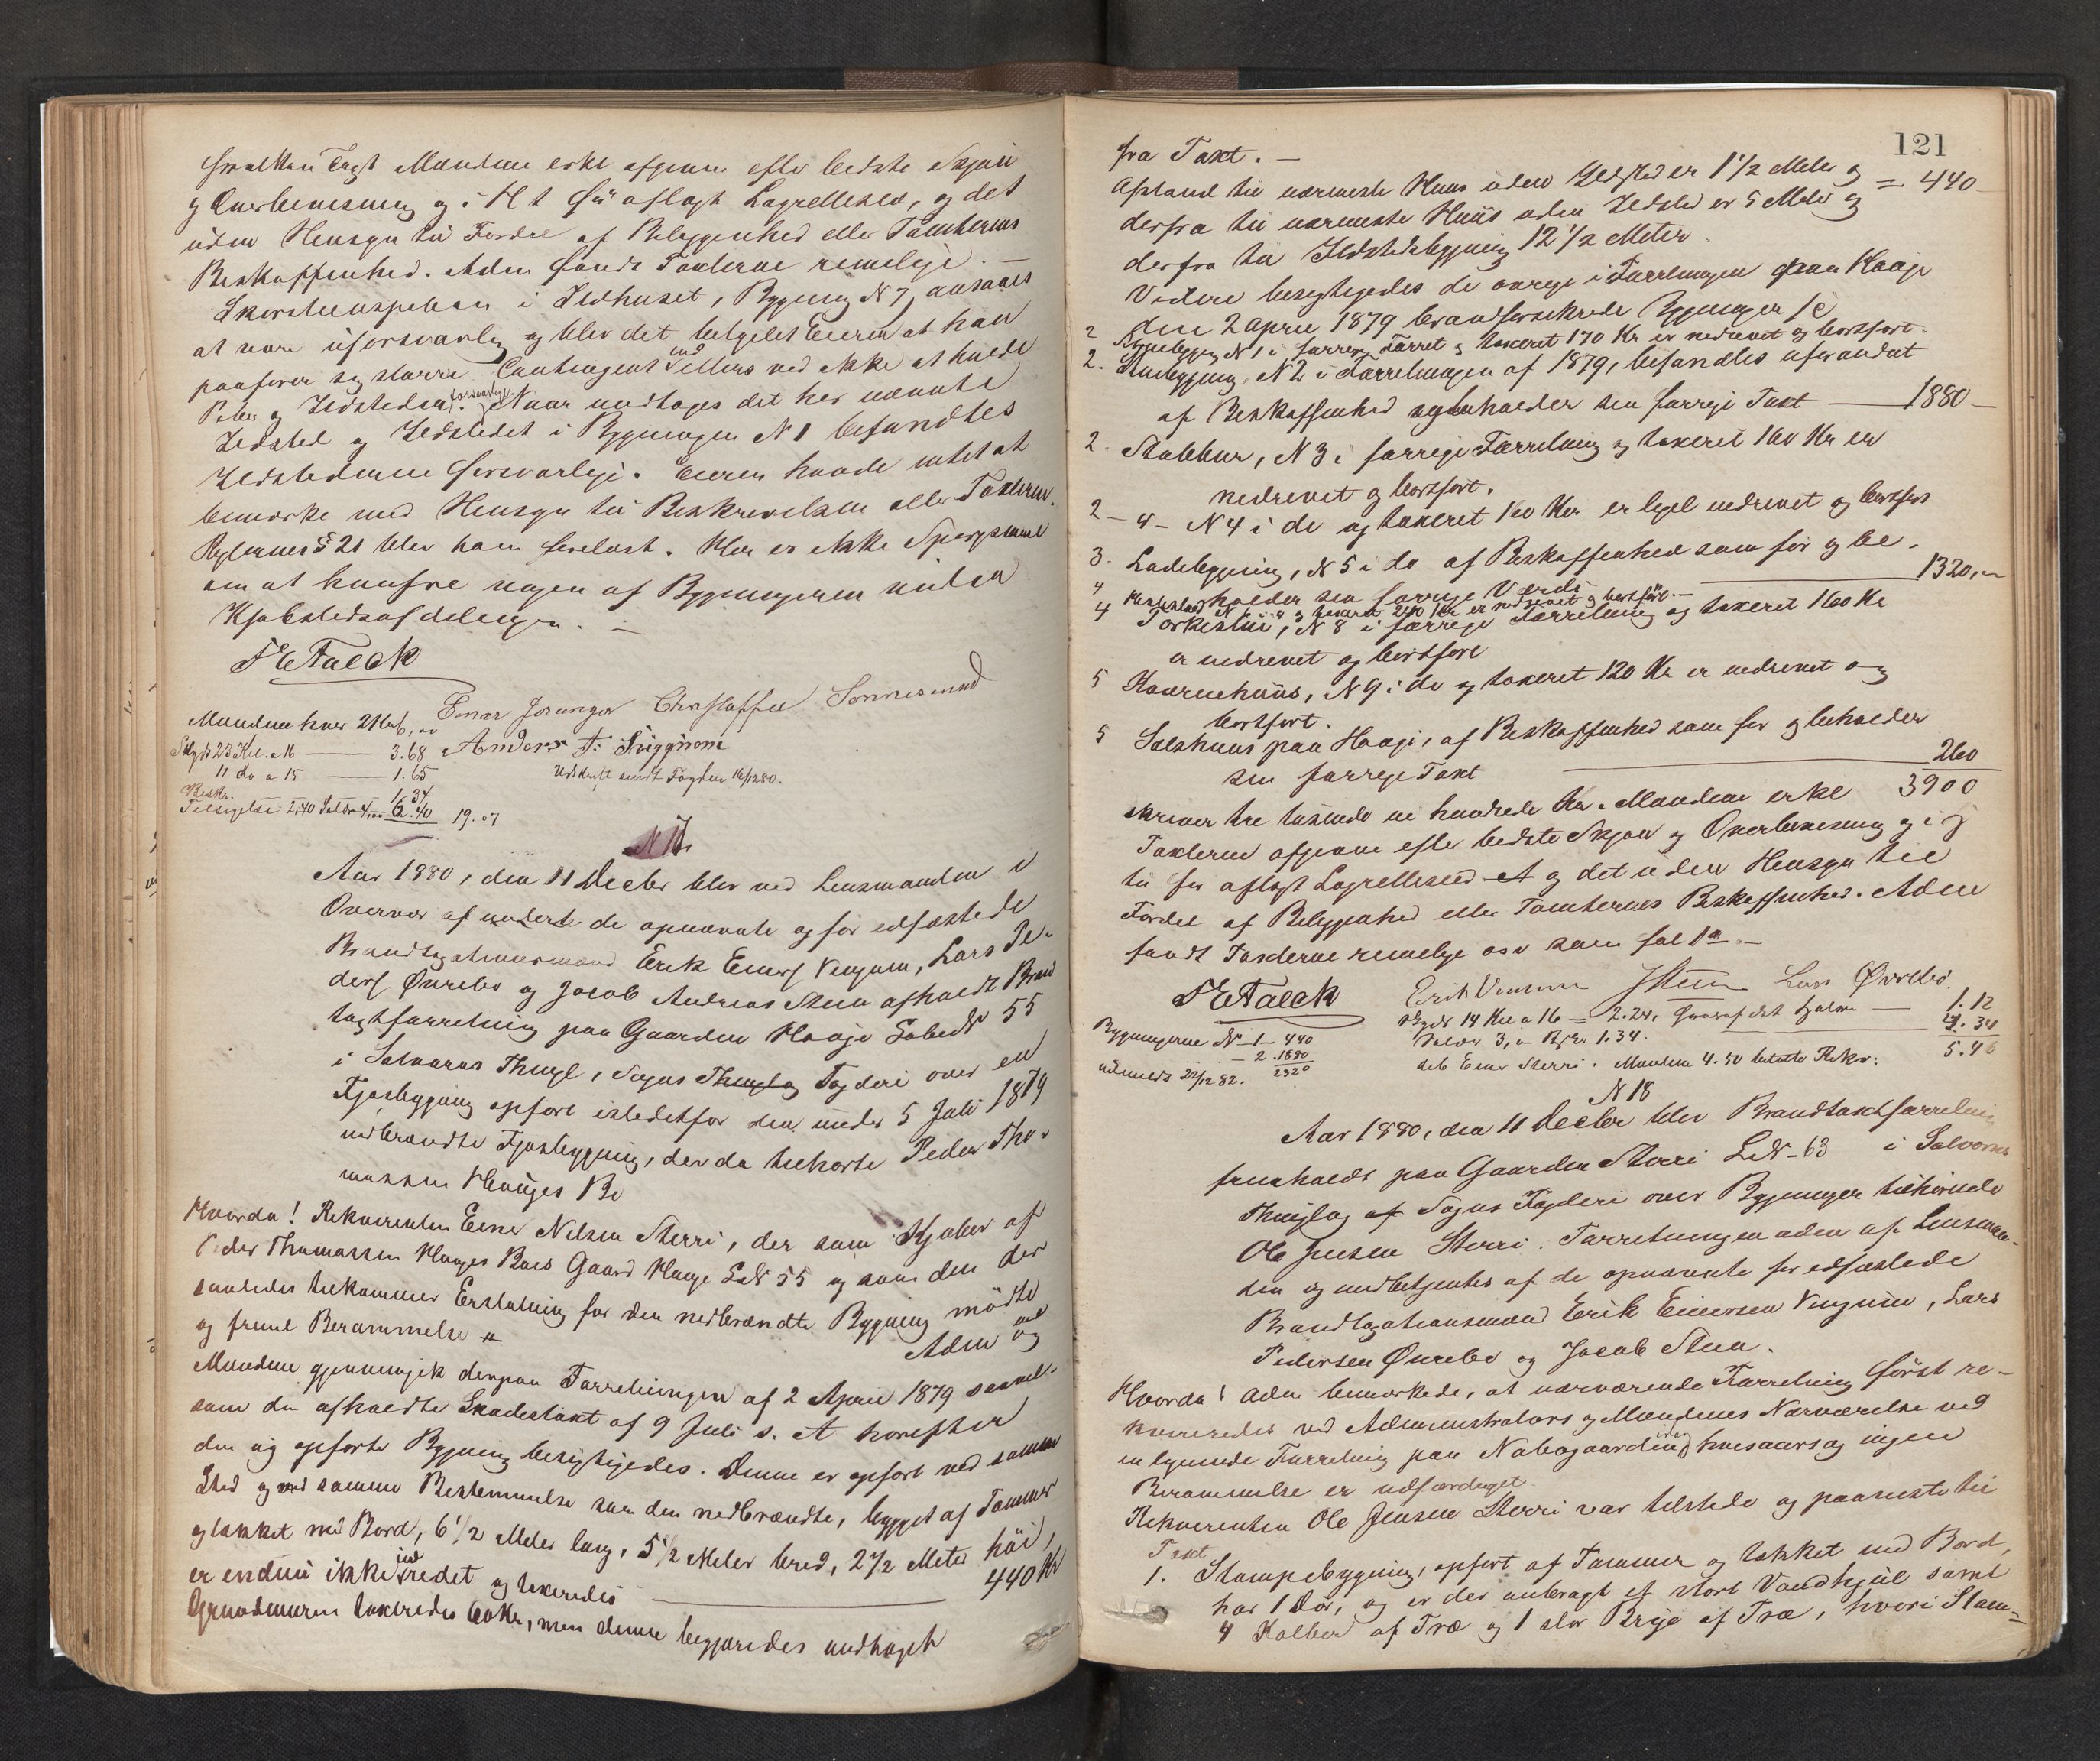 Mændene erkl afgivne efter bedste Skjøn
og Overbevisning og i H t før aflagt Lagrettesed, og det
uden Hensyn til Fordel af Beliggenhed eller Tomternes
Beskaffenhed. Adm fandt Taxterne rimelige. —
Skorsteenspiben i Ildhuset, Bygning N 7, ansaaes
at være uforsvarlig og blev det betydet Eieren at han
paafører sig større Contingent ved ikke at holde
Piber og Ildsteder forsvarlige. Naar undtages det her nævnte
Ildsted og Ildstedet i Bygningen N 1 befandtes
Ildstederne forsvarlige. Eieren havde intet at
bemærke med Hensyn til Beskrivelsen eller Taxterne.
Reglernes § 21 blev ham forelæst. Her er ikke Spørgsmaal
om at henføre nogen af Bygningerne under
Kjøbstedsafdelingen. —
F E Falck
Einar Joranger Christoffer Sønnesand
Mændene hver 2 Kr 6,00
Skyds 23 Kil. a 16 — 3.68 Anders T.
11 do a 15 — 1.65 Udskrift sendt Fogden 16/12 80.
Beskr. 1.34
Tilsigelse 2,40 6.40 19.07
N 17
Aar 1880, den 11 Decbr blev ved Lensmanden i
Overvær af de opnævnte og før edfæstede
Brandtaxationsmænd Erik Eners Venjum, Lars Pe-
ders Øvrebø og Jacob Andreas Steen afholdt Brand
taxtforretning paa Gaarden Hauge Løbend 55
i Solvorns Thingl, Sogns Fogderi over en
Fjøsbygning opført istedetfor den under 5 Juli 1879
nedbrændte Fjøsbygning, der da tilhørte Peder Tho-
massen Hauges Bo
Hvorda! Rekvirenten Einer Nilsen Sterri, der som Kjøber af
Peder Thomassen Hauges Boes Gaard Hauge LN 55 og som den der
saaledes tilkommer Erstatning for den nedbrændte Bygning mødte
og freml Berammelse
Adm og
Mændene gjennemgik derpaa Forretningen af 2 April 1879 saavel-
som den afholdte Skadestakt af 9 Juli s. A hvorefter
den ny opførte Bygning besigtigedes. Denne er opført ved samme
Sted og med samme Bestemmelse som den nedbrændte, bygget af Tømmer
og takket med Bord, 6 1/2 Meter lang, 5 1/2 Meter bred, 2 1/2 Meter høi,
er endnu ikke indredet og taxeredes — 440 Kr
Grundmuren taxeredes 60 Kr, men denne begjæredes undtaget
121
fra Taxt. —
Afstand til nærmeste Huus uden Ildsted er 1 1/2 Meter og = 440 —
derfra til nærmeste Huus uden Ildsted er 5 Meter og
derfra til Ildstedsbygning 12 1/2 Meter.
Videre besigtigedes de øvrige i Forretningen paa Hauge
den 2 April 1879 brandforsikrede Bygninger
2 N 1 i forrige Forret og taxeret 170 Kr er nedrevet og bortført.
2. Stuebygning, N 2 i Forretningen af 1879, befandtes uforandret
af Beskaffenhed og beholder sin forrige Taxt — 1880 —
2. Stabbur, N 3 i forrige Forretning og taxeret 160 Kr er
nedrevet og bortført.
2 — " — N 4 i do og taxeret 160 Kr er ligel nedrevet og bortført
3. Ladebygning, N 5 i do af Beskaffenhed som før og be-
holder sin forrige Værdi — 1320,—
4 og taxeret 240 Kr er nedrevet og bortført. —
4 Tørkestue, N 8 i forrige Forretning og taxeret 160 Kr
er nedrevet og bortført
5 Kværnehuus, N 9 i do og taxeret 120 Kr er nedrevet og
bortført.
5 Sælshuus paa Hauge, af Beskaffenhed som før og beholder
sin forrige Taxt — 260
3900
skriver tre tusinde ni hundrede Kr. Mændene erkl
Taxterne afgivne efter bedste Skjøn og Overbevisning og i H
til før aflagt Lagrettesed og det uden Hensyn til
Fordel af Beliggenhed eller Tomternes Beskaffenhed. Adm
fandt Taxterne rimelige osv som fol 1a. —
F E Falck Erik Venjum JSteen Lars Øvrebø.
Bygningerne N — 1 — 440 Skyds 14 Kil a 16 = 2.24, heraf det halve — 1.12
— 2. 1880 3, 1.34. 4.34
udmeldt 22/12 82. 2320 deb Einer Sterri. Mændene 4.50 betalte Rekv: 5.46
N 18
Aar 1880, den 11 Decbr blev Brandtaxtforretning
fremholdt paa Gaarden Sterri LN 63 i Solvorns
Thinglag af Sogns Fogderi over Bygninger tilhørende
Ole Jensen Sterri. Forretningen adm af Lensman-
den og medbetjentes af de opnævnte før edfæstede
Brandtaxationsmænd Erik Einersen Venjum, Lars
Pedersen Øvrebø og Jacob Steen.
Hvorda! Adm bemærkede, at nærværende Forretning først re-
kvireredes ved Administrators og Mændenes Nærværelse ved
en lignende Forretning paa Nabogaarden, hvesaarsag ingen
Berammelse er udfærdiget
Rekvirenten Ole Jensen Sterri var tilstede og paaviste til
Taxt
1. Stampebygning, opført af Tømmer og takket med Bord,
har 1 Dør, og er der anbragt et stort Vandhjul samt
4 Kolber af Træ og 1 stor Brye af Træ, hvori Stam=